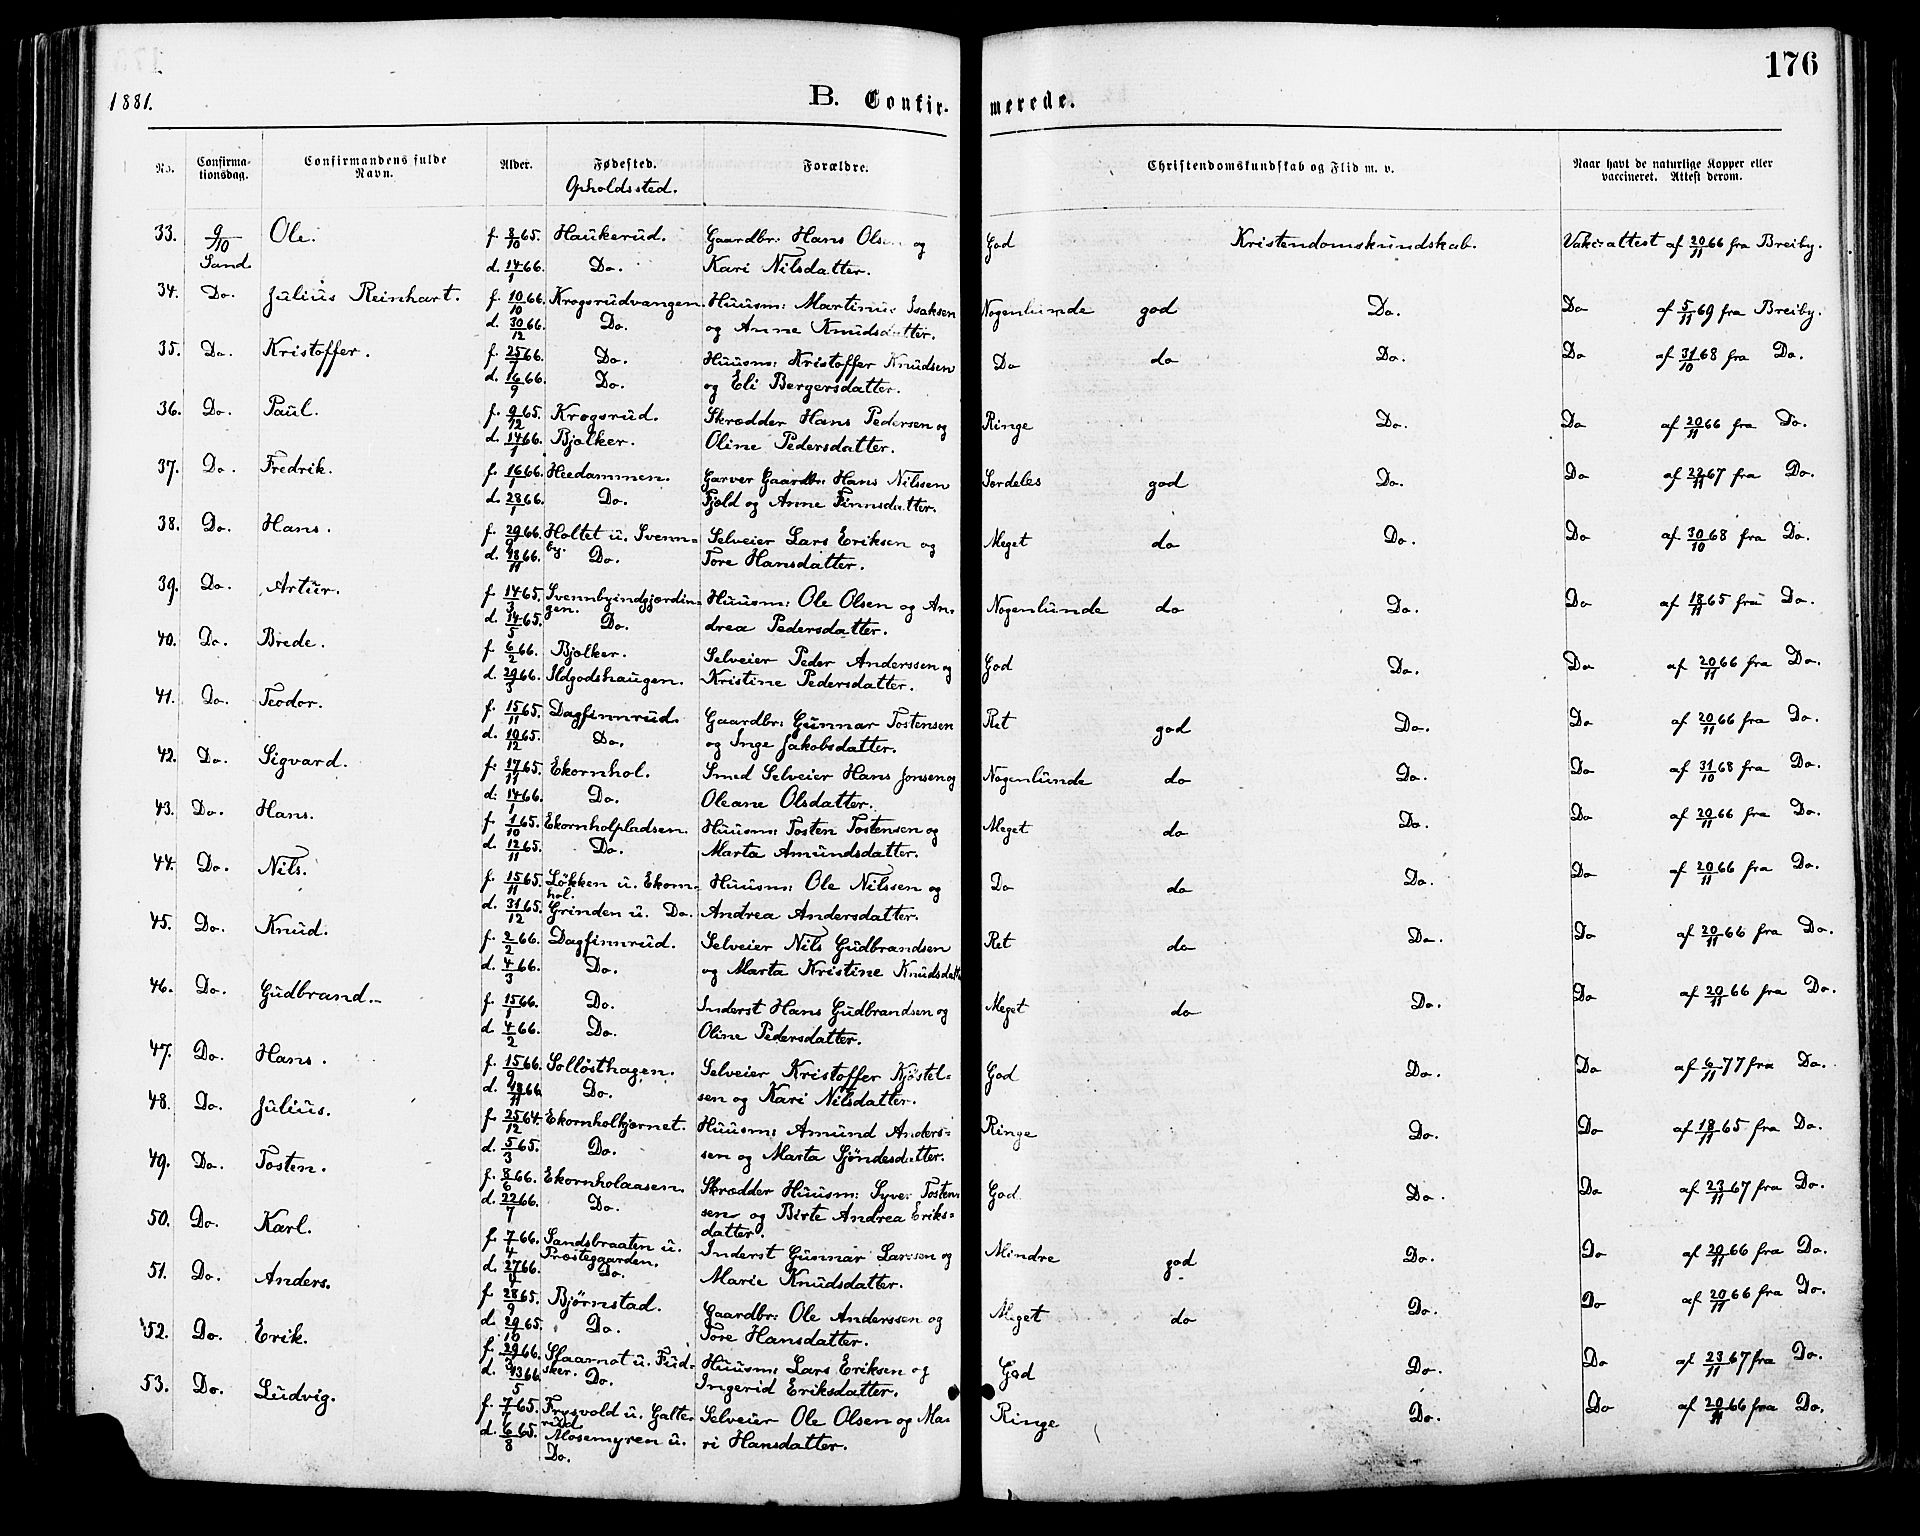 176
1881.
B. Confirmerede.
No. Confirmationsdag. Confirmandens fulde Navn. Alder. Fødested. Opholdssted. Forældre. Christendomskundskab og Flid m. v. Naar havt de naturlige Kopper eller vaccineret. Attest derom.
33. 9/10 Ole. f. 8/10 65. Haukerud. Gaardbr: Hans Olsen og God Kristendomskundskab. Vakc.attest af 20/11 66 fra Breiby.
Sand. d. 14/1 66. Do. Kari Nilsdatter.
34. Do. Julius Reinhart. f. 10/10 66. Krogsrudvangen. Huusm: Martinus Isaksen Nogenlunde god Do. Do af 5/11 69 fra Breiby.
d. 30/12 66. Do. og Anne Knudsdatter.
35. Do. Kristoffer. f. 25/7 66. Do. Huusm: Kristoffer Knudsen Do do Do. Do af 31/10 68 fra Do.
d. 16/9 66. Do. og Eli Bergersdatter.
36. Do. Paul. f. 9/12 65. Krogsrud. Skrædder Hans Pedersen og Ringe Do. Do af 20/11 66 fra Do.
d. 14/1 66. Bjølker. Oline Pedersdatter.
37. Do. Fredrik. f. 16/1 66. Heedammen. Garver Gaardbr: Hans Nilsen Særdeles god Do. Do af 22/11 67 fra Do.
d. 28/1 66. Do. Fjeld og Anne Finnsdatter.
38. Do. Hans. f. 29/9 66. Holtet u. Svennby. Selveier Lars Eriksen og Meget do Do. Do af 30/10 68 fra Do.
d. 18/11 66. Do. Tore Hansdatter.
39. Do. Artur. f. 14/3 65. Svennbyindgjærdingen. Huusm: Ole Olsen og An- Nogenlunde do Do. Do af 18/11 65 fra Do.
d. 14/5 65. Do. drea Pedersdatter.
40. Do. Brede. f. 6/2 66. Bjølker. Selveier Peder Anderssen og God Do. Do af 20/11 66 fra Do.
d. 29/3 66. Ildgodshaugen. Kristine Pedersdatter.
41. Do. Teodor. f. 15/11 65. Dagfinnrud. Gaardbr: Gunnar Tostensen Ret god Do. Do af 20/11 66 fra Do.
d. 10/12 65. Do. og Inge Jakobsdatter.
42. Do. Sigvard. f. 17/11 65. Ekornhol. Smed Selveier Hans Jonsen og Nogenlunde do Do. Do af 31/10 68 fra Do.
d. 14/1 66. Do. Oleane Olsdatter.
43. Do. Hans. f. 1/10 65. Ekornholpladsen. Huusm: Tosten Tostensen og Meget do Do. Do af 20/11 66 fra Do.
d. 12/11 65. Do. Marta Amundsdatter.
44. Do. Nils. f. 15/11 65. Løkken u. Ekornhol. Huusm: Ole Nilssen og Do do Do. Do af 20/11 66 fra Do.
d. 31/12 65. Grinden u. Do. Andrea Andersdatter.
45. Do. Knud. f. 2/2 66. Dagfinnrud. Selveier Nils Gudbrandsen Ret do Do. Do af 20/11 66 fra Do.
d. 4/3 66. Do. og Marta Kristine Knudsdatt
46. Do. Gudbrand. f. 15/1 66. Do. Inderst Hans Gudbrandsen og Meget do Do. Do af 20/11 66 fra Do.
d. 4/2 66. Do. Oline Pedersdatter.
47. Do. Hans. f. 15/9 66. Solløsthagen. Selveier Kristoffer Kjøstel- God Do. Do af 6/11 77 fra Do.
d. 18/11 66. Do. sen og Kari Nilsdatter.
48. Do. Julius. f. 25/12 64. Ekornholkjærnet. Huusm: Amund Anders- Ringe Do. Do af 18/11 65 fra Do.
d. 5/3 65. Do. sen og Marta Sjøndesdatter.
49. Do. Tosten. f. 8/6 66. Ekornholaasen. Skrædder Huusm: Syver Tosten- God. Do. Do af 23/11 67 fra Do.
d. 22/7 66. Do. sen og Birte Andrea Eriks-
datter.
50. Do. Karl. f. 7/4 66. Sandsbraaten u. Præsteggaarden. Inderst Gunnar Larssen og Mindre god Do. Do af 20/11 66 fra Do.
d. 27/4 66. Do. Marie Knudsdatter.
51. Do. Anders. f. 28/9 65. Bjørnstad. Gaardbr: Ole Anderssen og Meget do Do. Do af 20/11 66 fra Do.
d. 29/10 65. Do. Tore Hansdatter.
52. Do. Erik. f. 29/3 66. Slaarnot u. Fudsker. Huusm: Lars Eriksen og God Do. Do af 23/11 67 fra Do.
d. 13/5 66. Do. Ingerid Eriksdatter.
53. Do. Ludvig. f. 7/7 65. Frysvold u. Galterud. Selveier Ole Olsen og Ma- Ringe Do. Do af 20/11 66 fra Do.
d. 6/8 65. Mosemyren u. Do. ri Hansdatter.